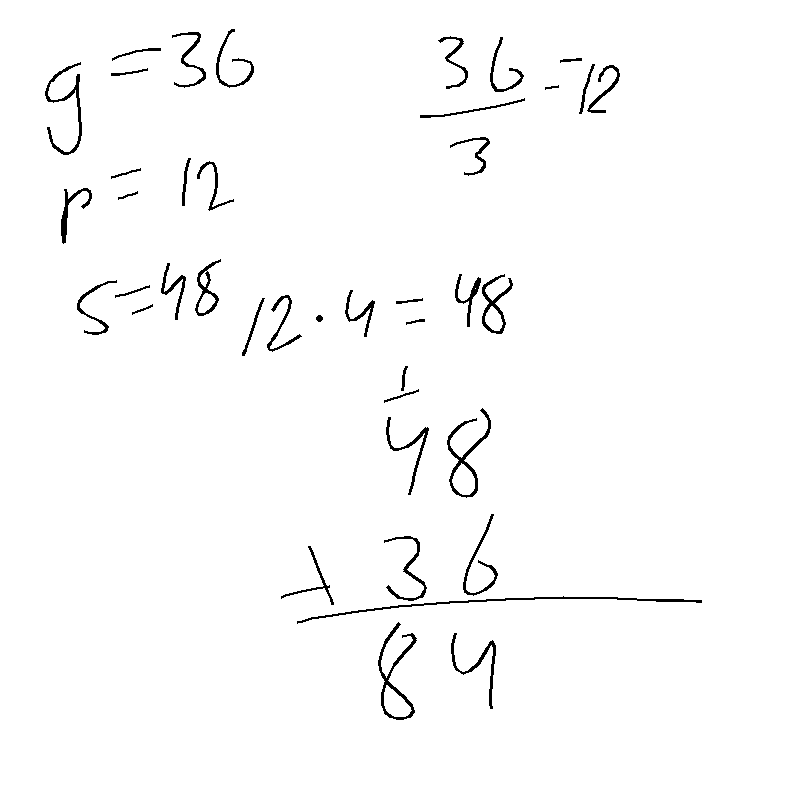 g = 36
36/3 = 12
p = 12
s = 48
12 · 4 = 48
1
48
+ 36
84